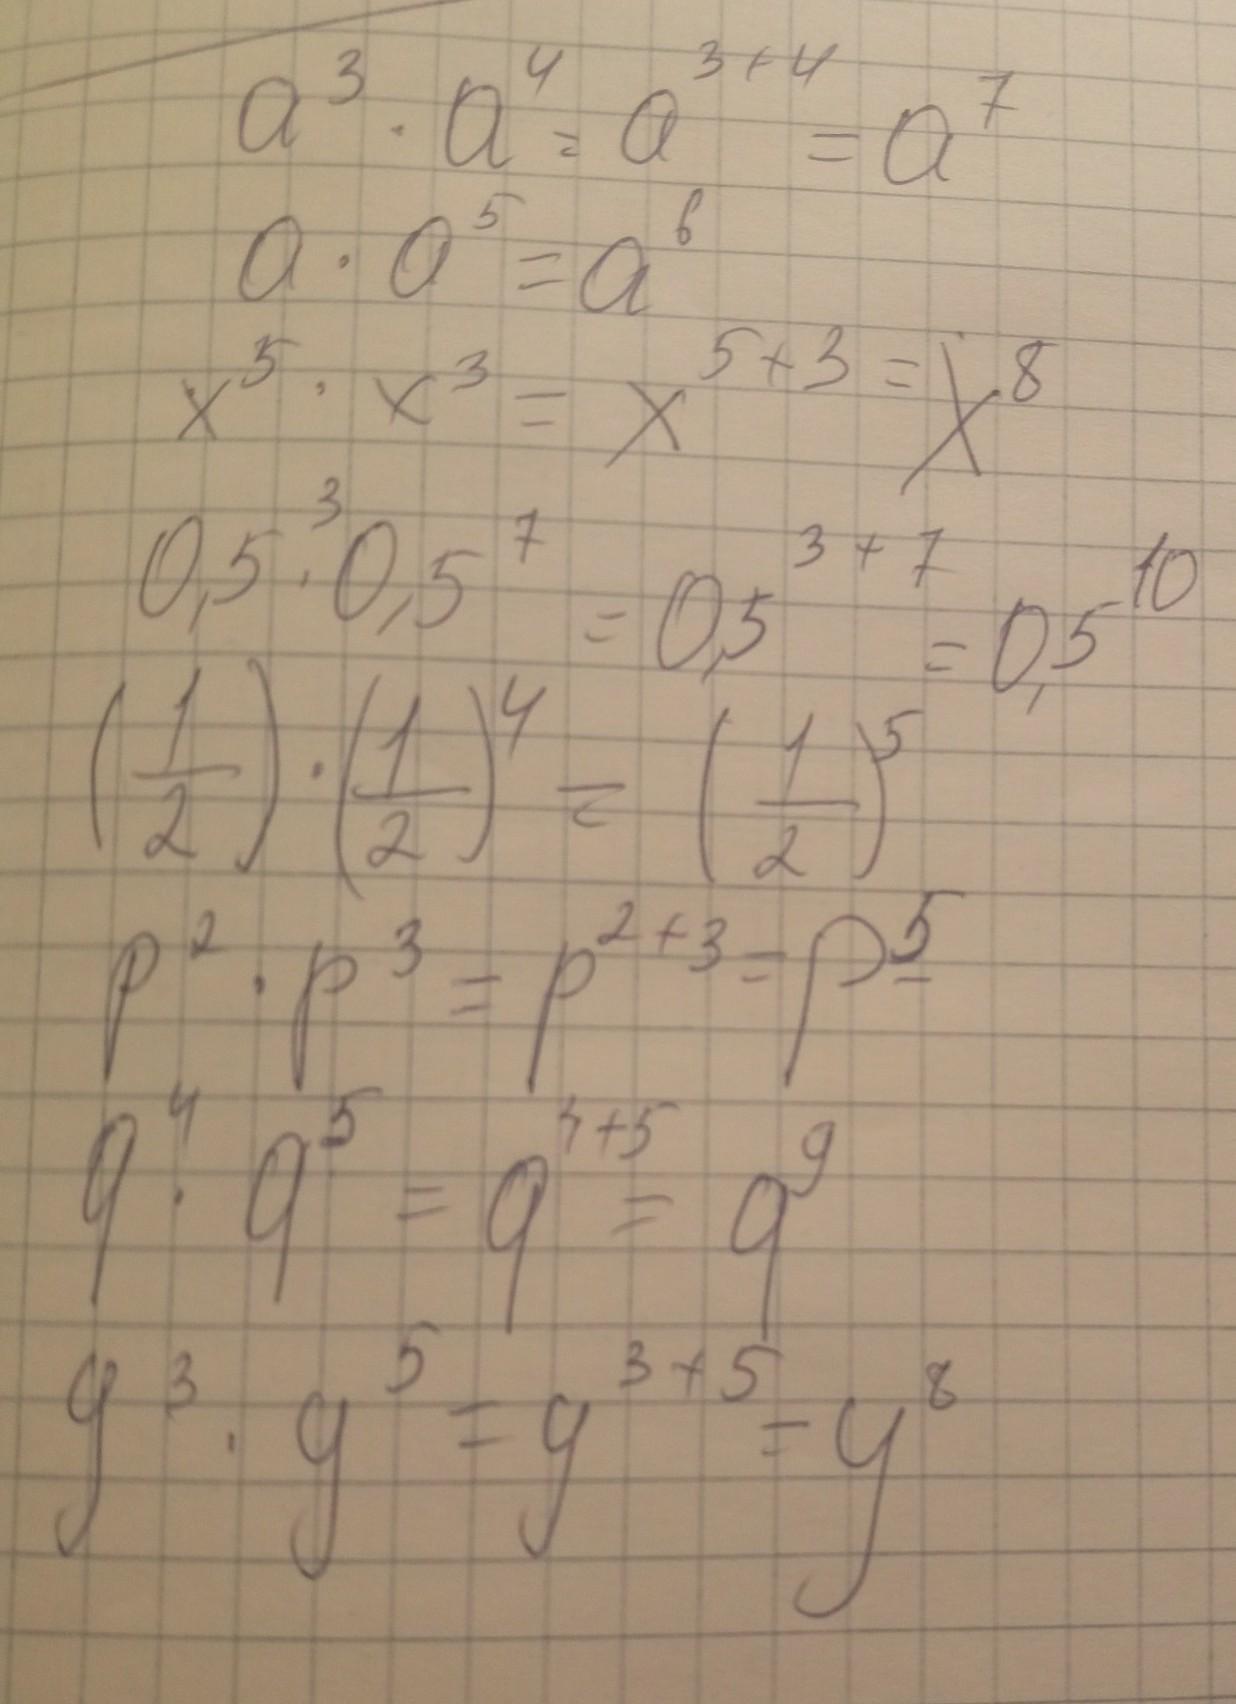 a³ · a⁴ = a³⁺⁴ = a⁷
a · a⁵ = a⁶
x⁵ · x³ = x⁵⁺³ = x⁸
0,5³ · 0,5⁷ = 0,5³⁺⁷ = 0,5¹⁰
(1/2) · (1/2)⁴ = (1/2)⁵
p² · p³ = p²⁺³ = p⁵
q⁴ · q⁵ = q⁴⁺⁵ = q⁹
y³ · y⁵ = y³⁺⁵ = y⁸